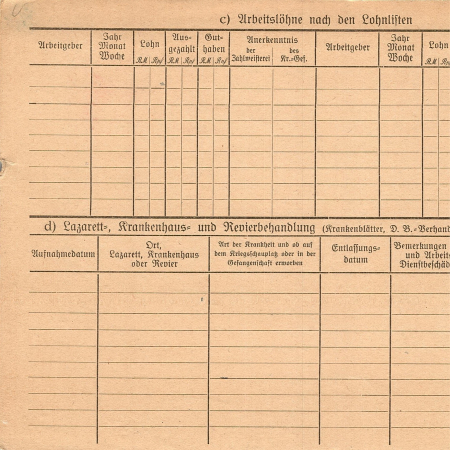 c) Arbeitslöhne nach den Lohnlisten
Arbeitgeber Jahr Monat Woche Lohn Aus- gezahlt Gut- haben Anerkenntnis Arbeitgeber Jahr Monat Woche Lohn
der Zahlmeisterei des Kr.-Gef.
RM Rpf RM Rpf RM Rpf RM Rpf
d) Lazarett-, Krankenhaus- und Revierbehandlung (Krankenblätter, D. B.-Verhand
Aufnahmedatum Ort, Lazarett, Krankenhaus oder Revier Art der Krankheit und ob auf dem Kriegsschauplatz oder in der Gefangenschaft erworben Entlassungs- datum Bemerkungen und Arbeits Dienstbeschäd